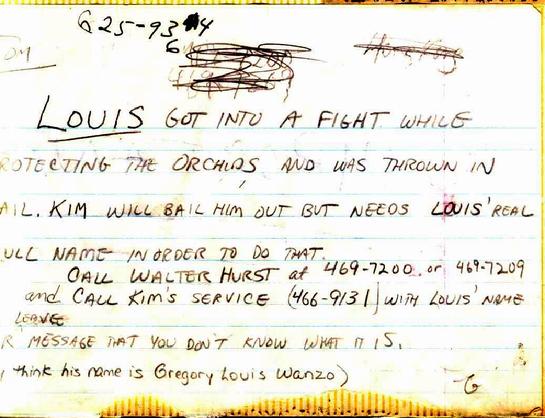 625-93 4
6
LOUIS GOT INTO A FIGHT WHILE
ROTECTING THE ORCHIDS AND WAS THROWN IN
AIL. KIM WILL BAIL HIM OUT BUT NEEDS LOUIS' REAL
ULL NAME IN ORDER TO DO THAT.
CALL WALTER HURST at 469-7200 or 469-7209
and CALL KIM'S SERVICE (466-9131) WITH LOUIS' NAME
LEAVE
R MESSAGE THAT YOU DON'T KNOW WHAT IT IS.
think his name is Gregory Louis Wanzo)
G